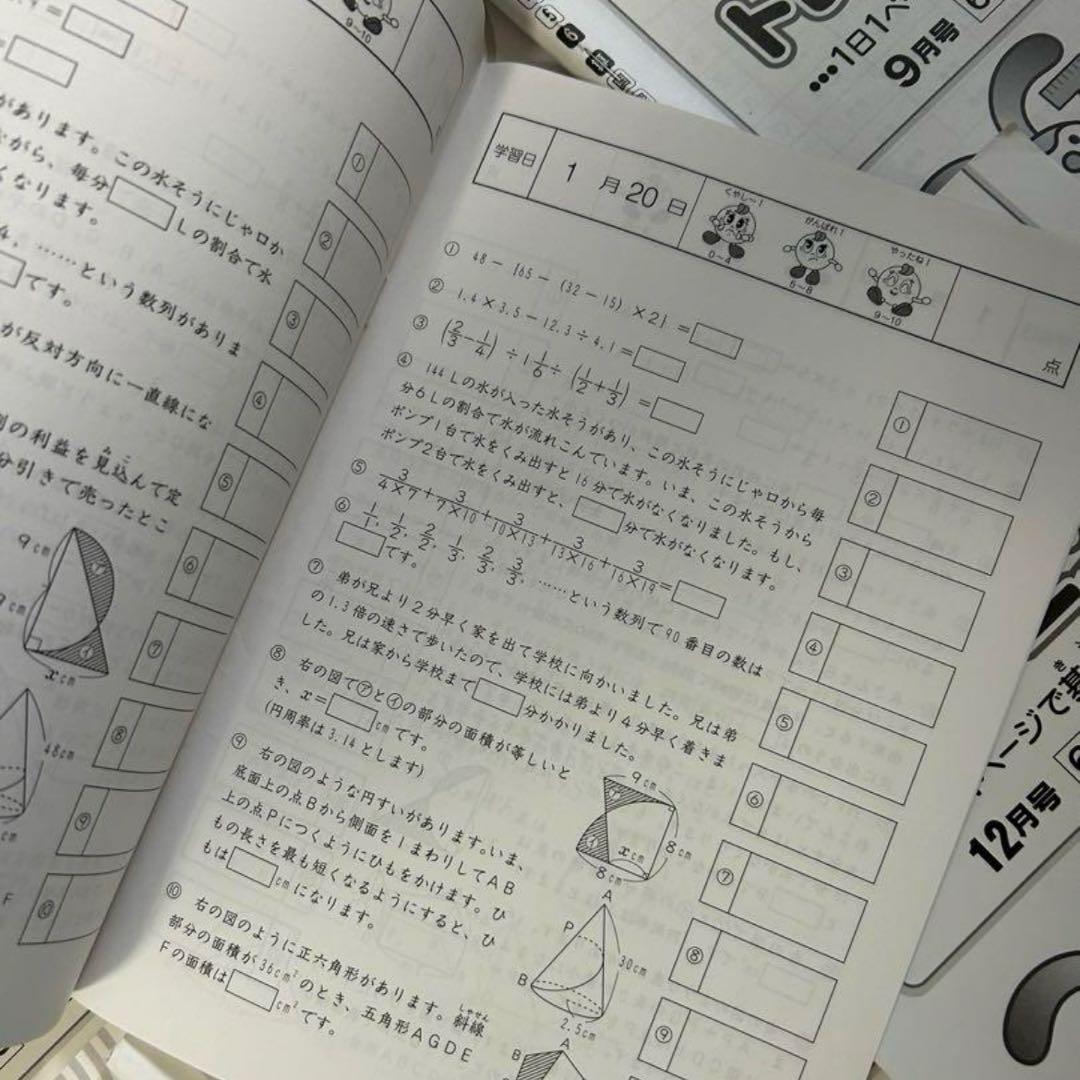 9~10
があります。この水そうにじゃ口か
ながら、毎分 Lの割合で水
くなります。
……という数列がありま
です。
が反対方向に一直線にな
割の利益を見込んで定
み こ
分引きで売ったとこ
9cm
9cm
xcm
48cm
F
①
②
③
④
⑤
⑥
⑦
⑧
⑨
⑩
学習日 1月20日
くやしー!
0~4
がんばれ!
5~8
やったね!
9~10
点
① 48－{65－(32－15)×2}＝
② 1.4×3.5－12.3÷4.1＝
③ (2/3－1/4)÷1 1/6÷(1/2＋1/3)＝
④ 144Lの水が入った水そうがあり、この水そうにじゃ口から毎
分6Lの割合で水が流れこんでいます。いま、この水そうから
ポンプ1台で水をくみ出すと16分で水がなくなりました。もし、
ポンプ2台で水をくみ出すと、 分で水がなくなります。
⑤ 3/4×7＋3/7×10＋3/10×13＋3/13×16＋3/16×19＝
⑥ 1/1, 1/2, 2/2, 1/3, 2/3, 3/3, ……という数列で90番目の数は
です。
⑦ 弟が兄より2分早く家を出て学校に向かいました。兄は弟
の1.3倍の速さで歩いたので、学校には弟より4分早く着きま
した。兄は家から学校まで 分かかりました。
⑧ 右の図で㋐と㋑の部分の面積が等しいと
き、x＝ cmです。
(円周率は3.14とします)
9cm
㋐
㋑
xcm
8cm
8cm
⑨ 右の図のような円すいがあります。いま、
底面上の点Bから側面を1まわりしてAB
上の点Pにつくようにひもをかけます。ひ
もの長さを最も短くなるようにすると、ひ
もは cmになります。
A
P
30cm
B
2.5cm
⑩ 右の図のように正六角形があります。斜線
しゃせん
部分の面積が36cm²のとき、五角形AGDE
Fの面積は cm²です。
A
B
①
②
③
④
⑤
⑥
⑦
⑧
⑨
…1日1ペ
9月号
ページで
12月号